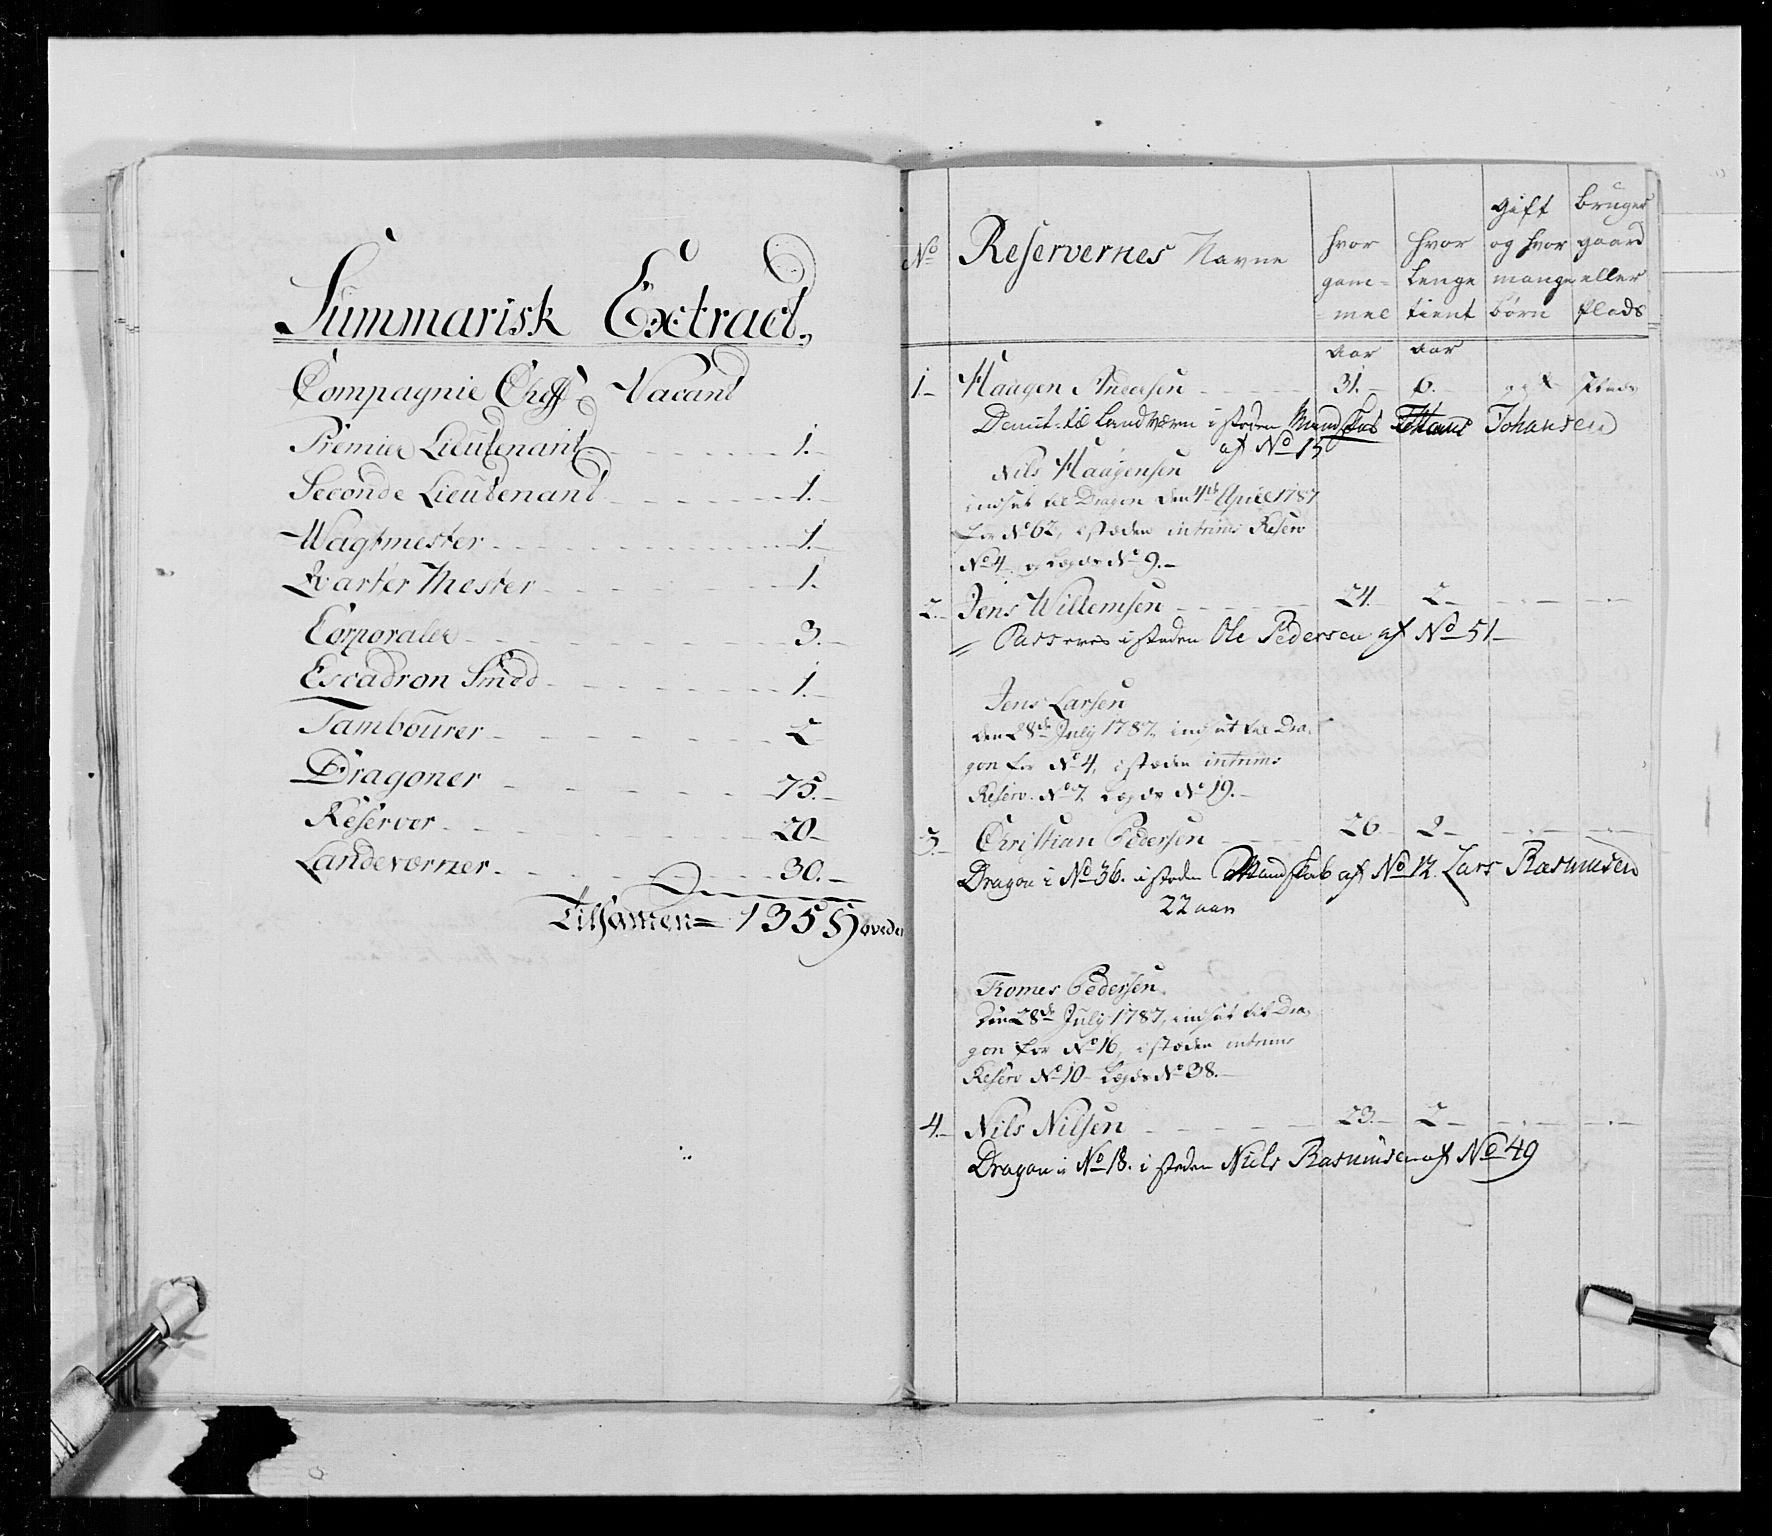 Summarisk Extract,
Compagnie Cheff Vacant
Premier Lieutenant 1.
Seconde Lieutenant 1.
Wagtmester 1.
Qvarter Mester 1.
Corporaler 3.
Escadron Smed 1.
Tambourer 2
Dragoner 75.
Reserver 20
Landeværner 30.
Tilsamen = 135 Hoveder
No Reservernes Navne hvor gam= mel hvor lenge tient Gift og hvor mange børn bruger gaard eller Plads
aar aar
1 Haagen Andersen 31. 6. Plads
til Landværn i steden Mandskab Hans Johansen
af No 15
Nils Haagensen
indsat til Dragon den 4de April 1787
for No 62, i stæden intrims Reserv
No 4 og Lægds No 9.
2 Jens Willemsen 24. 2
Casseres i steden Ole Pedersen af No 51
Jens Larsen
den 28de July 1787, indsat til Dra=
gon for No 4, i stæden intrims
Reserv. No 7. Lægds No 19.
3. Christian Pedersen 26 2
Dragon i No 36. i steden Mandskab af No 12. Lars Rasmusen
22 aar
Tromes Pedersen
Den 28de July 1787, indsat til Dra=
gon for No 16, i stæden intrims
Reserv No 10 Lægds No 38.
4. Nils Nilsen 23. 2
Dragon i No 18. i steden Niels Rasmusen af No 49